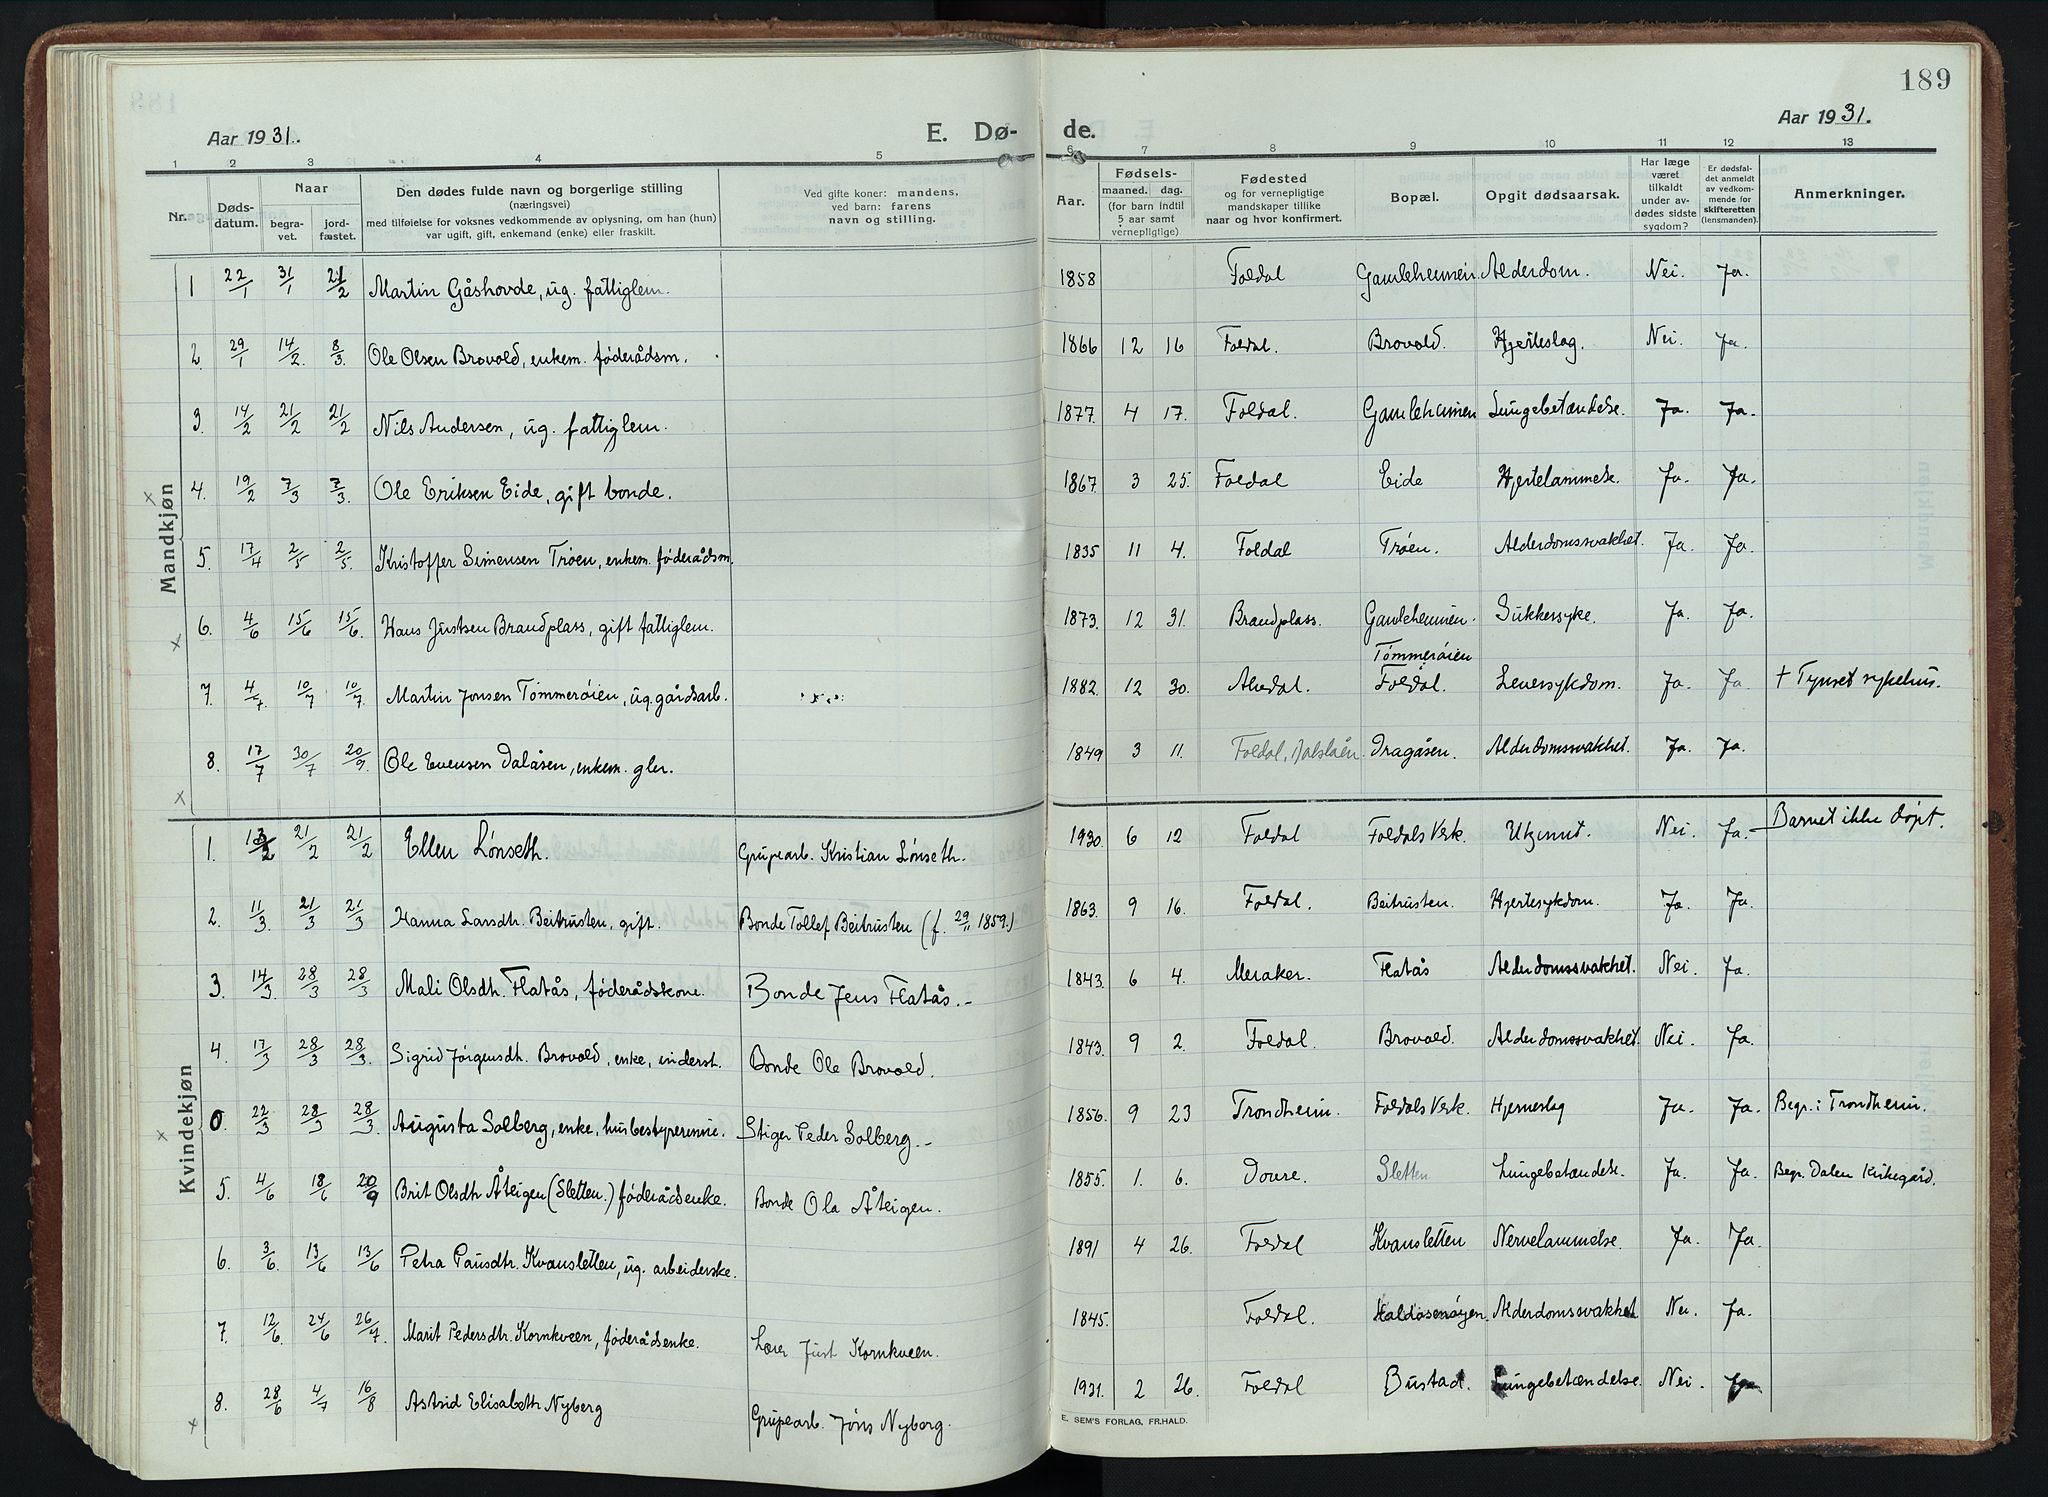 189
Aar 1931.
E. Dø- de.
Aar 1931.
1 2 3 4 5 6 7 8 9 10 11 12 13
Nr.
Døds-
datum.
Naar
begra-
vet.
jord-
fæstet.
Den dødes fulde navn og borgerlige stilling
(næringsvei)
med tilføielse for voksnes vedkommende av oplysning, om han (hun)
var ugift, gift, enkemand (enke) eller fraskilt.
Ved gifte koner: mandens,
ved barn: farens
navn og stilling.
Aar.
Fødsels-
maaned. dag.
(for barn indtil
5 aar samt
vernepligtige)
Fødested
og for vernepligtige
mandskaper tillike
naar og hvor konfirmert.
Bopæl.
Opgit dødsaarsak.
Har læge
været
tilkaldt
under av-
dødes sidste
sygdom?
Er dødsfal-
det anmeldt
av vedkom-
mende for
skifteretten
(lensmanden).
Anmerkninger.
Mandkjøn
1 22/1 31/1 21/2 Martin Gåshovde, ug. fattiglem. 1858 Foldal Gamleheimen Alderdom. Nei. Ja.
2. 29/1 14/2. 8/3. Ole Olsen Brovold, enkem. føderådsm. 1866 12 16 Foldal. Brovold. Hjerteslag. Nei. Ja.
3. 14/2 21/2 21/2 Nils Andersen, ug. fattiglem. 1877. 4 17. Foldal. Gamleheimen Lungebetændelse. Ja. Ja.
4. 19/2 7/3 7/3. Ole Eriksen Eide, gift bonde. 1867. 3 25. Foldal Eide Hjertelammelse. Ja. Ja.
5. 17/4 2/5 2/5. Kristoffer Simensen Trøen, enkem. føderådsm. 1835 11 4. Foldal Trøen. Alderdomssvakhet. Ja. Ja.
6. 4/6 15/6 15/6. Hans Justsen Brandplass, gift fattiglem. 1873. 12 31. Brandplass. Gamleheimen. Sukkersyke. Ja. Ja.
Tømmerøien
7. 4/7. 10/7 10/7. Martin Jonsen Tømmerøien, ug. gårdsarb. 1882. 12 30. Alvdal. Foldal. Leversykdom. Ja. Ja + Tynset sykehus.
8. 17/7 30/7 20/9. Ole Evensen Dalåsen, enkem. 1849 3 11. Foldal, Dragåsen. Alderdomssvakhet. Ja. Ja.
Kvindekjøn
1. 21/2 21/2 Ellen Lønseth. Grupearb. Kristian Lønseth. 1930. 6 12 Foldal Foldals Verk. Ukjennt. Nei. Ja. Barnet ikke døpt.
2. 11/3. 21/3 21/3 Hanna Larsdtr. Beitrusten, gift. Bonde Tollef Beitrusten (f. 29/11 1859.) 1863. 9 16. Foldal. Beitrusten. Hjertesykdom. Ja. Ja.
3. 14/3. 28/3 28/3 Mali Olsdtr. Flatås, føderådskone. Bonde Jens Flatås. 1843. 6 4. Meraker. Flatås Alderdomssvakhet. Nei. Ja.
4. 17/3 28/3 28/3. Sigrid Jørgensdtr. Brovold, enke, inderst. Bonde Ole Brovold. 1843. 9 2. Foldal. Brovold. Alderdomssvakhet. Nei. Ja.
0. 22/3 28/3 28/3. Augusta Solberg, enke, husbestyrerinne. Stiger Peder Solberg. 1856. 9 23 Trondheim. Foldals Verk. Hjerneslag Ja. Ja. Begr. i Trondheim.
5. 4/6 18/6 20/9 Brit Olsdtr Åteigen (Sletten.) føderådsenke. Bonde Ola Åteigen. 1855. 1. 6. Dovre. Sletten Lungebetændelse. Ja. Ja. Begr. Dalen Kirkegård.
6. 3/6. 13/6 13/6 Petra Paulsdtr. Kvansletten, ug. arbeiderske. 1891 4 26. Foldal Kvansletten Nervelammelse. Ja. Ja.
7. 12/6 24/6 26/7 Marit Pedersdtr. Kornkveen, føderådsenke. Lærer Just Kornkveen. 1845. Foldal. Haldosenøyen. Alderdomssvakhet Nei. Ja.
8. 28/6 4/7 16/8 Astrid Elisabeth Nyberg Grupearb. Jøns Nyberg. 1931. 2 26. Foldal Bustad. Lungebetændelse. Nei. Ja
E. SEM'S FORLAG, FR.HALD.